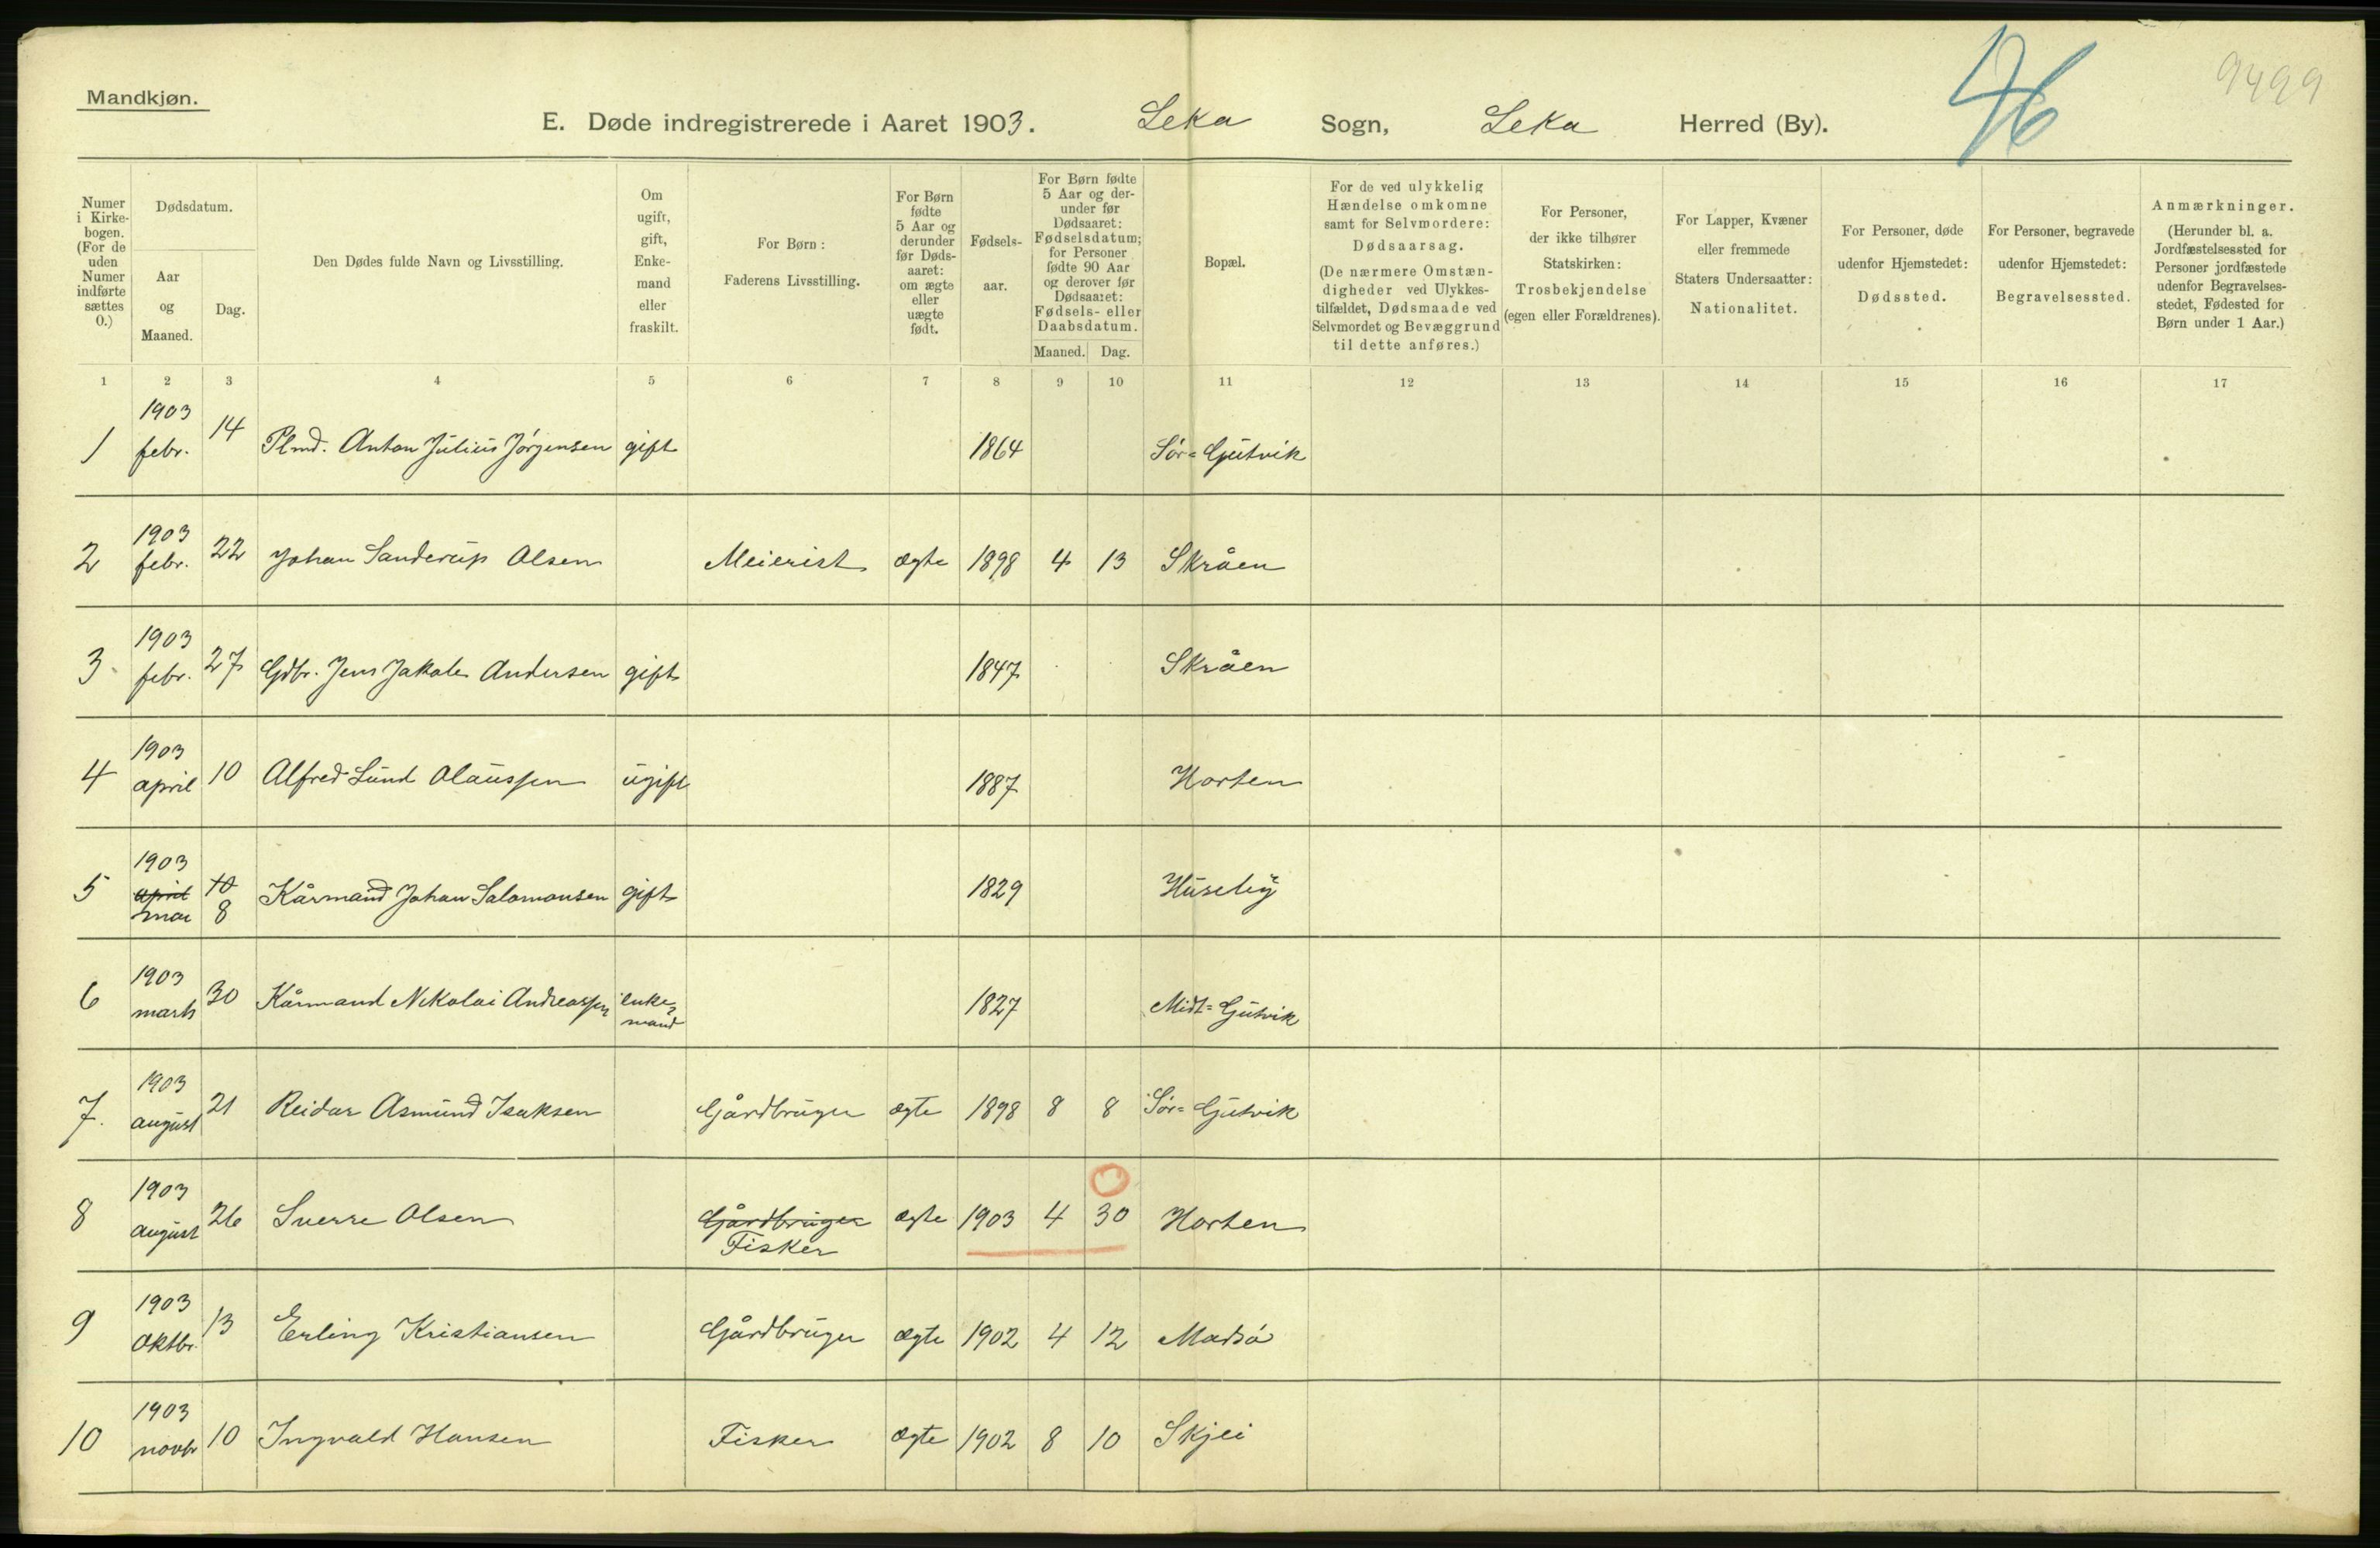 Mandkjøn.
E. Døde indregistrerede i Aaret 1903. Leka Sogn, Leka Herred (By).
46
9499
Numer i Kirkebogen. (For de uden Numer indførte sættes 0.)
Dødsdatum.
Aar og Maaned.
Dag.
Den Dødes fulde Navn og Livsstilling.
Om ugift, gift, Enkemand eller fraskilt.
For Børn: Faderens Livsstilling.
For Børn fødte 5 Aar og derunder før Dødsaaret: om ægte eller uægte født.
Fødselsaar.
For Børn fødte 5 Aar og derunder før Dødsaaret: Fødselsdatum; for Personer fødte 90 Aar og derover før Dødsaaret: Fødsels- eller Daabsdatum.
Maaned. Dag.
Bopæl.
For de ved ulykkelig Hændelse omkomne samt for Selvmordere: Dødsaarsag. (De nærmere Omstændigheder ved Ulykkestilfældet, Dødsmaade ved Selvmordet og Bevæggrund til dette anføres.)
For Personer, der ikke tilhører Statskirken: Trosbekjendelse (egen eller Forældrenes).
For Lapper, Kvæner eller fremmede Staters Undersaatter: Nationalitet.
For Personer, døde udenfor Hjemstedet: Dødssted.
For Personer, begravede udenfor Hjemstedet: Begravelsessted.
Anmærkninger. (Herunder bl. a. Jordfæstelsessted for Personer jordfæstede udenfor Begravelsesstedet, Fødested for Børn under 1 Aar.)
1 2 3 4 5 6 7 8 9 10 11 12 13 14 15 16 17
1 1903 febr. 14 Plmd. Anton Julius Jørgensen gift 1864 Sør=Gutvik
2 1903 febr. 22 Johan Sanderup Olsen Meierist ægte 1898 4 13 Skråen
3 1903 febr. 27 Gdbr. Jens Jakob Andersen gift 1847 Skråen
4 1903 april 10 Alfred Lund Olaussen ugift 1887 Horten
5 1903 april mai 10 8 Kårmand Johan Salomonsen gift 1829 Huseby
6 1903 marts 30 Kårmand Nikolai Andreassen enke=mand 1827 Midt=Gutvik
7. 1903 august 21 Reidar Asmund Isaksen Gårdbruger ægte 1898 8 8 Sør=Gutvik
8 1903 august 26 Sverre Olsen Gårdbruger Fisker ægte 1903 4 30 Horten
9 1903 oktbr. 13 Erling Kristiansen Gårdbruger ægte 1902 4 12 Madsø
10 1903 novbr 10 Ingvald Hansen Fisker ægte 1902 8 10 Skjei